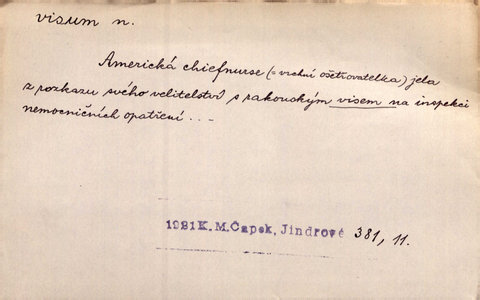 visum n.
Americká chiefnurse (= vrchní ošetřovatelka) jela
z rozkazu svého velitelství s rakouským visem na inspekci
nemocničních opatření...
1921 K. M. Čapek, Jindrové 381, 11.